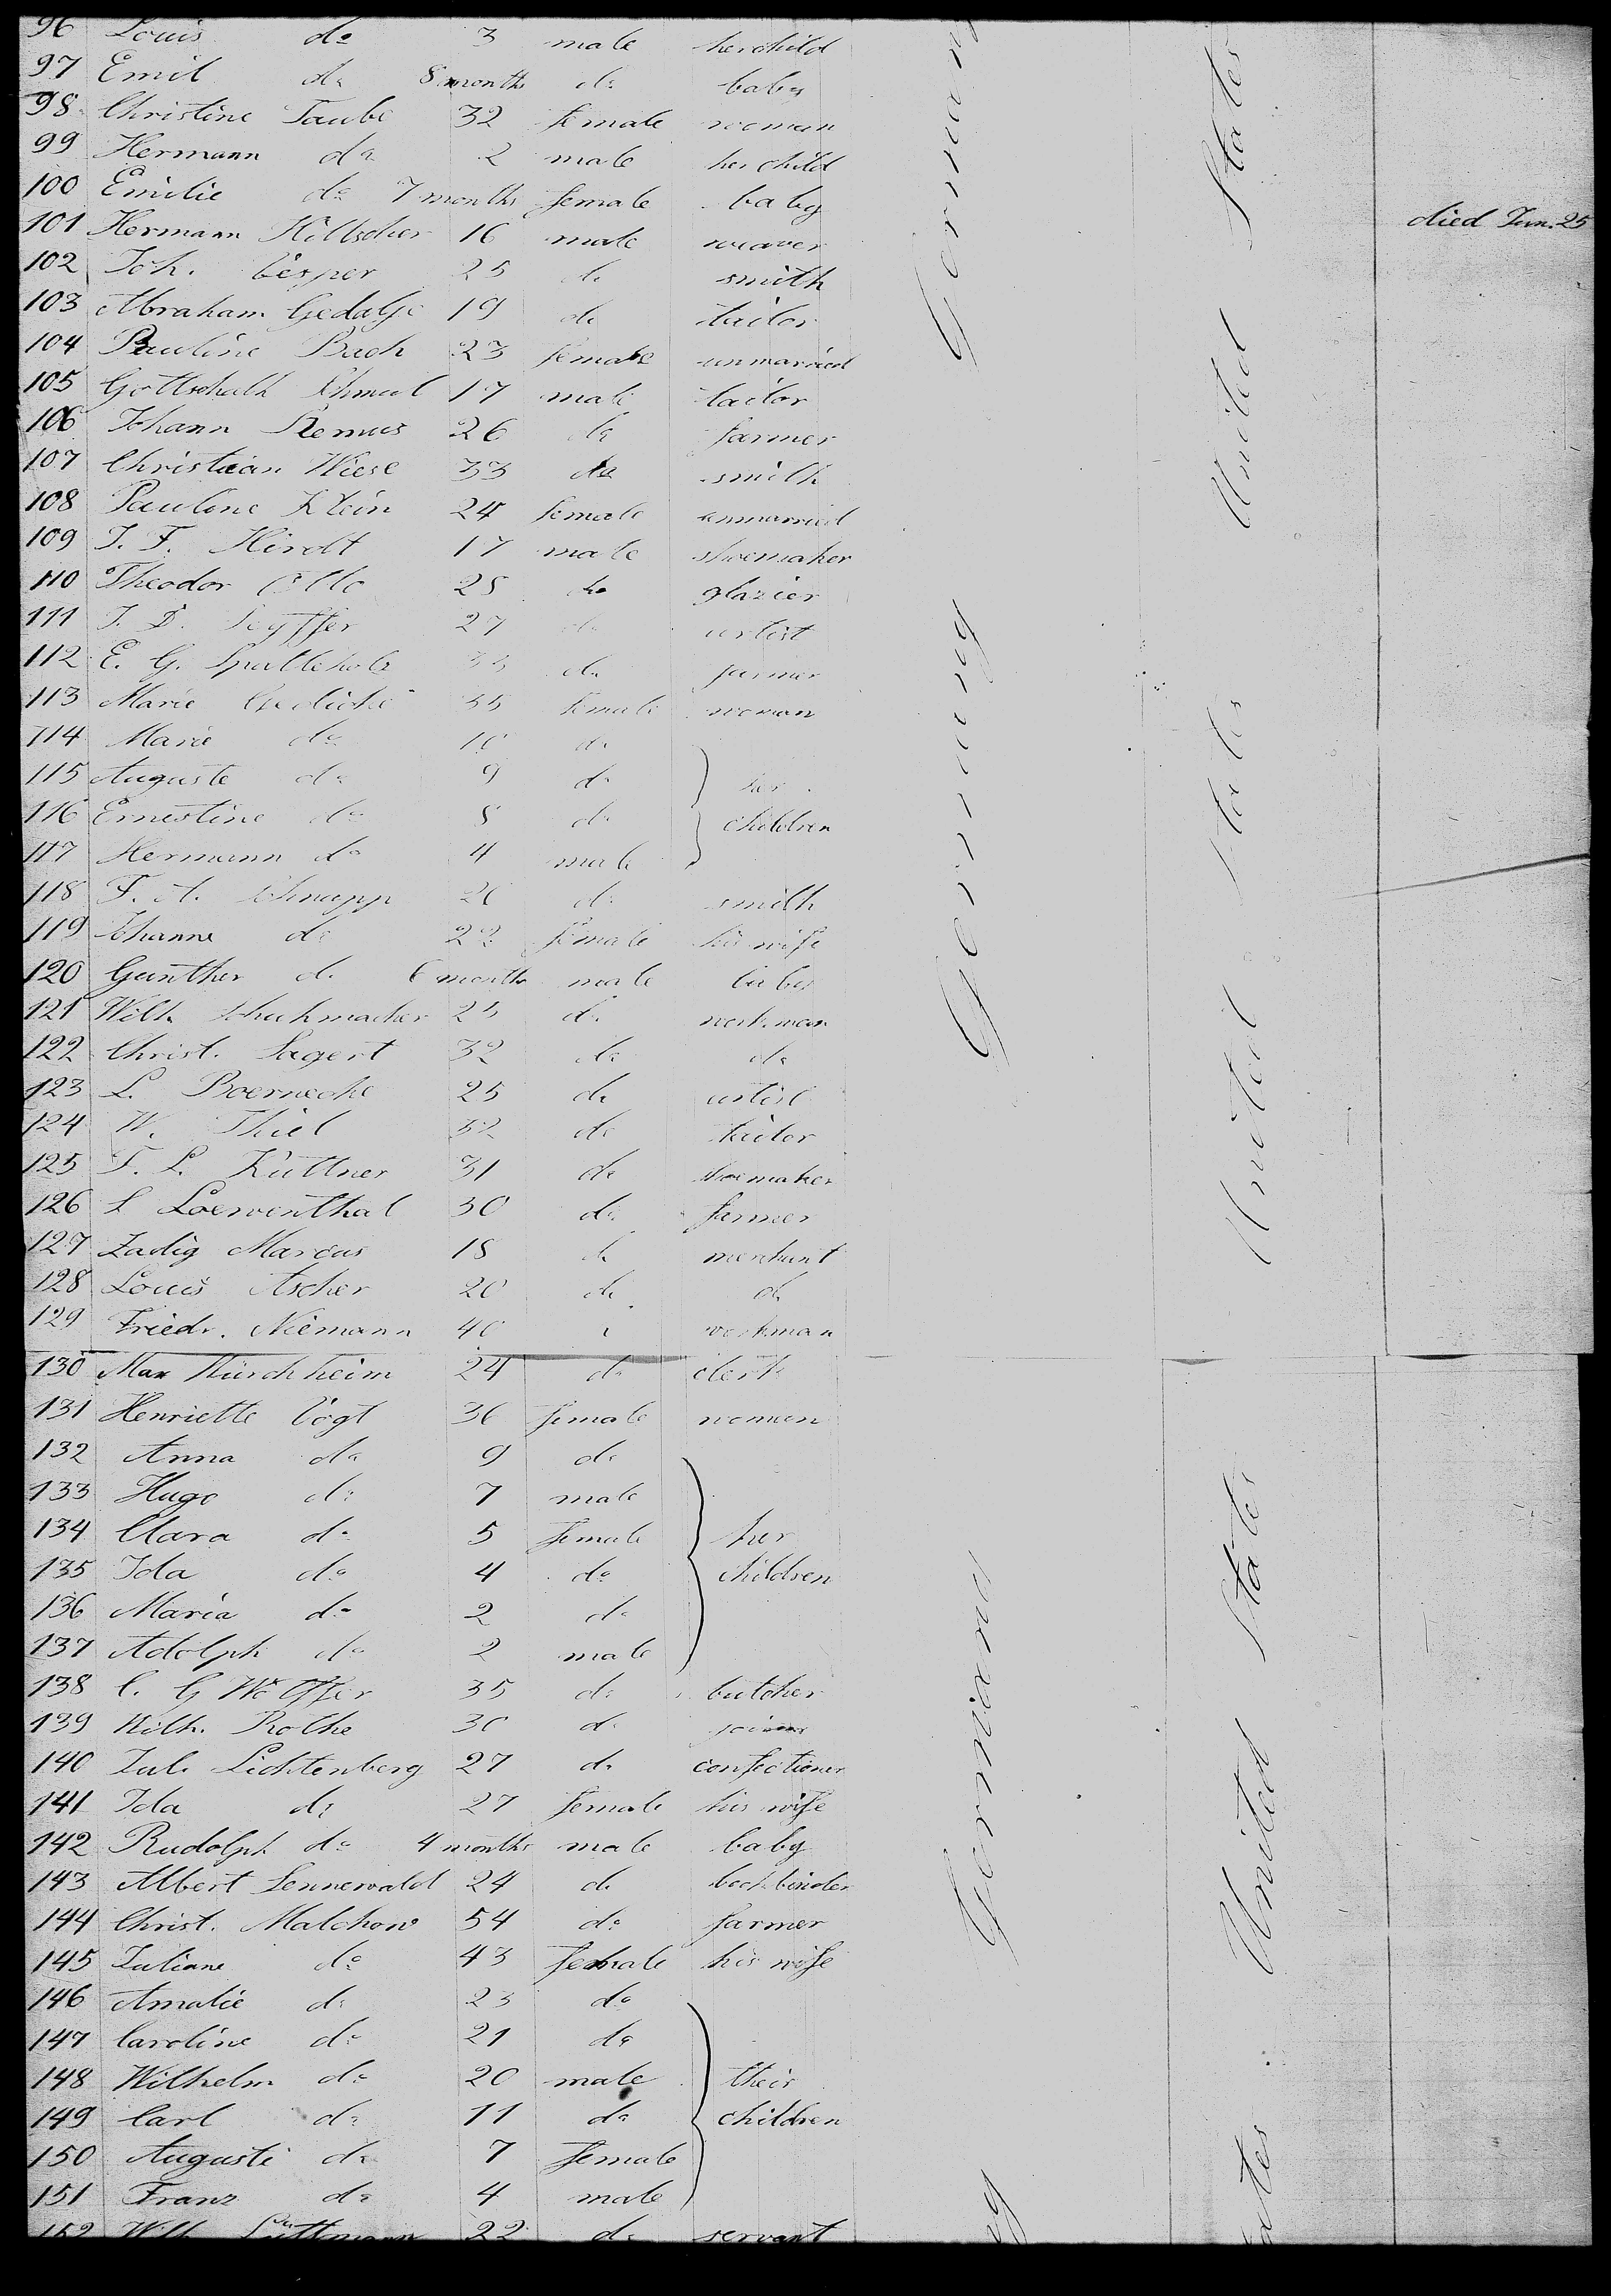 96 Louis do 3 male her child
97 Emil do 8 months do baby
98 Christine Taube 32 female woman
99 Hermann do 2 male her child
100 Emilie do 7 months female baby
101 Hermann Hiltscher 16 male weaver died Jun. 25
102 Joh. Vesper 25 do smith
103 Abraham Gedalje 19 do tailor
104 Pauline Bach 23 female unmarried
105 Gottschalk Schmul 17 male tailor
106 Johann Remus 26 do farmer
107 Christian Wiese 33 do smith
108 Pauline Klein 24 female unmarried
109 J. F. Hirdt 17 male shoemaker
110 Theodor Otto 28 do glazier
111 J. D. Seyffer 27 do artist
112 E. G. Spalteholz 33 do farmer
113 Marie 35 female woman
114 Marie do 10 do
115 Auguste do 9 do her
116 Ernestine do 8 do children
117 Hermann do 4 male
118 F. A. Schnapp 26 do smith
119 Johanne do 22 female his wife
120 Gunther do 6 months male baby
121 Wilh. Schuhmacher 25 do workman
122 Christ. Sagert 32 do do
123 L. Boernecke 25 do artist
124 W. Thiel 32 do tailor
125 F. L. Küttner 31 do shoemaker
126 S Loewenthal 30 do farmer
127 Zadig Marcus 18 do merchant
128 Louis Ascher 20 do do
129 Friedr. Niemann 40 workman
130 Max Kirchheim 24 do clerk
131 Henriette Vogt 36 female woman
132 Anna do 9 do
133 Hugo do 7 male
134 Clara do 5 female her
135 Ida do 4 do children
136 Maria do 2 do
137 Adolph do 2 male
138 C. G Wölffer 35 do butcher
139 Wilh. Rothe 30 do joiner
140 Jul. Lichtenberg 27 do confectioner
141 Ida do 27 female his wife
142 Rudolph do 4 months male baby
143 Albert Sennewald 24 do bookbinder
144 Christ. Malchow 54 do farmer
145 Juliane do 43 female his wife
146 Amalie do 23 do
147 Caroline do 21 do
148 Wilhelm do 20 male their
149 Carl do 11 do children
150 Auguste do 7 female
151 Franz do 4 male
152 Wilh. Lüttmann 22 do servant
Germany
Germany
Germany
United States
United States
United States